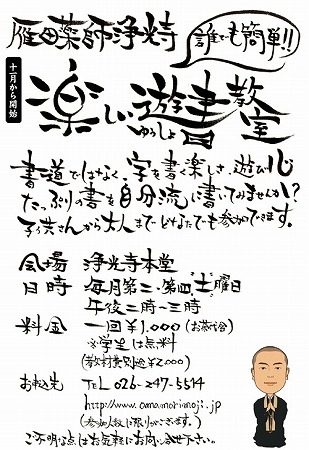 雁田薬師浄光寺
誰でも簡単!!
十二月から開始
楽しい遊書教室
ゆうしょ
書道ではなく、字を書く楽しさ、遊び心
たっぷりの書を自分流に書いてみませんか?
子供さんから大人までどなたでも参加できます。
会場 浄光寺本堂
日時 毎月第二・第四土曜日
午後二時〜三時
料金 一回¥1,000(お茶代含)
※学生は無料
(教材費別途¥2,000)
お申込先 TEL 026-247-5514
http://www.omamorimoji.jp
(参加人数に限りがございます。)
ご不明な点はお気軽にお問い合せ下さい。